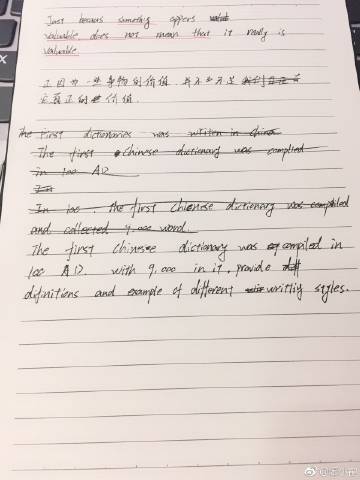 Just becaus something appers
valuable does not mean that it really is
valuable
正因为一些事物的价值,并不
真正的 价值.
The first dictionaries was written in china
The first Chinese dictionary was complied
in 100 AD
In
In 100 . the first Chinese dictionary was compiled
and collected 9.000 word
The first Chinese dictionary was compiled in
100 AD. with 9,000 in it, provide
definitions and example of different writtiy styles.